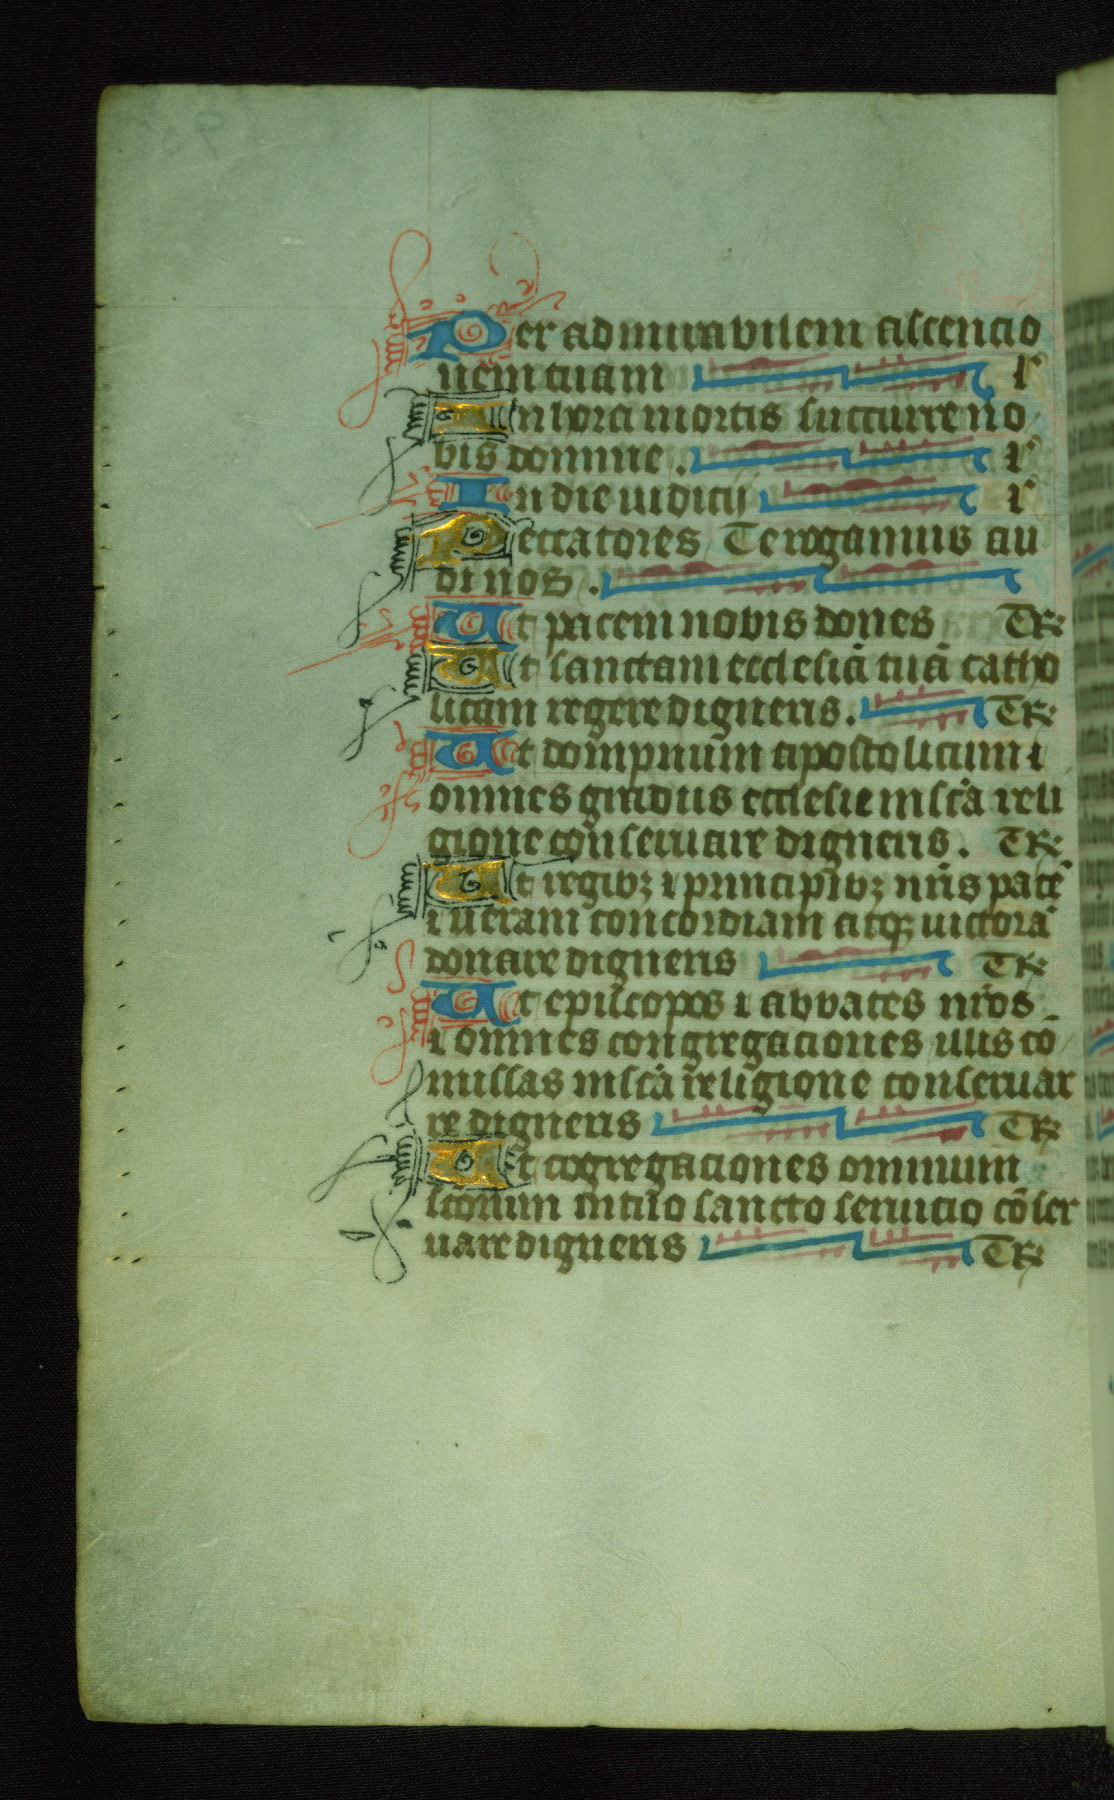 Per admirabilem ascencio
nem tuam l
In hora mortis succurre no
bis domine. l
In die iudicij l
Peccatores Te rogamus au
di nos.
Ut pacem nobis dones TR
Ut sanctam ecclesiā tuā catho
licam regere digneris. TR
Ut dompnum apostolicum ⁊
omnes gradus ecclesie in sc̄a reli
gione conseruare digneris. TR
Ut regibꝫ ⁊ principibꝫ nr̄is pacē
⁊ ueram concordiam atqꝫ uictorā
donare digneris TR
Ut episcopos ⁊ abbates nr̄os
⁊ omnes congregaciones illis cō
missas in sc̄a religione conseruar
re digneris TR
Ut cogregaciones omnium
sctorum in tuo sancto seruicio cōser
uare digneris TR